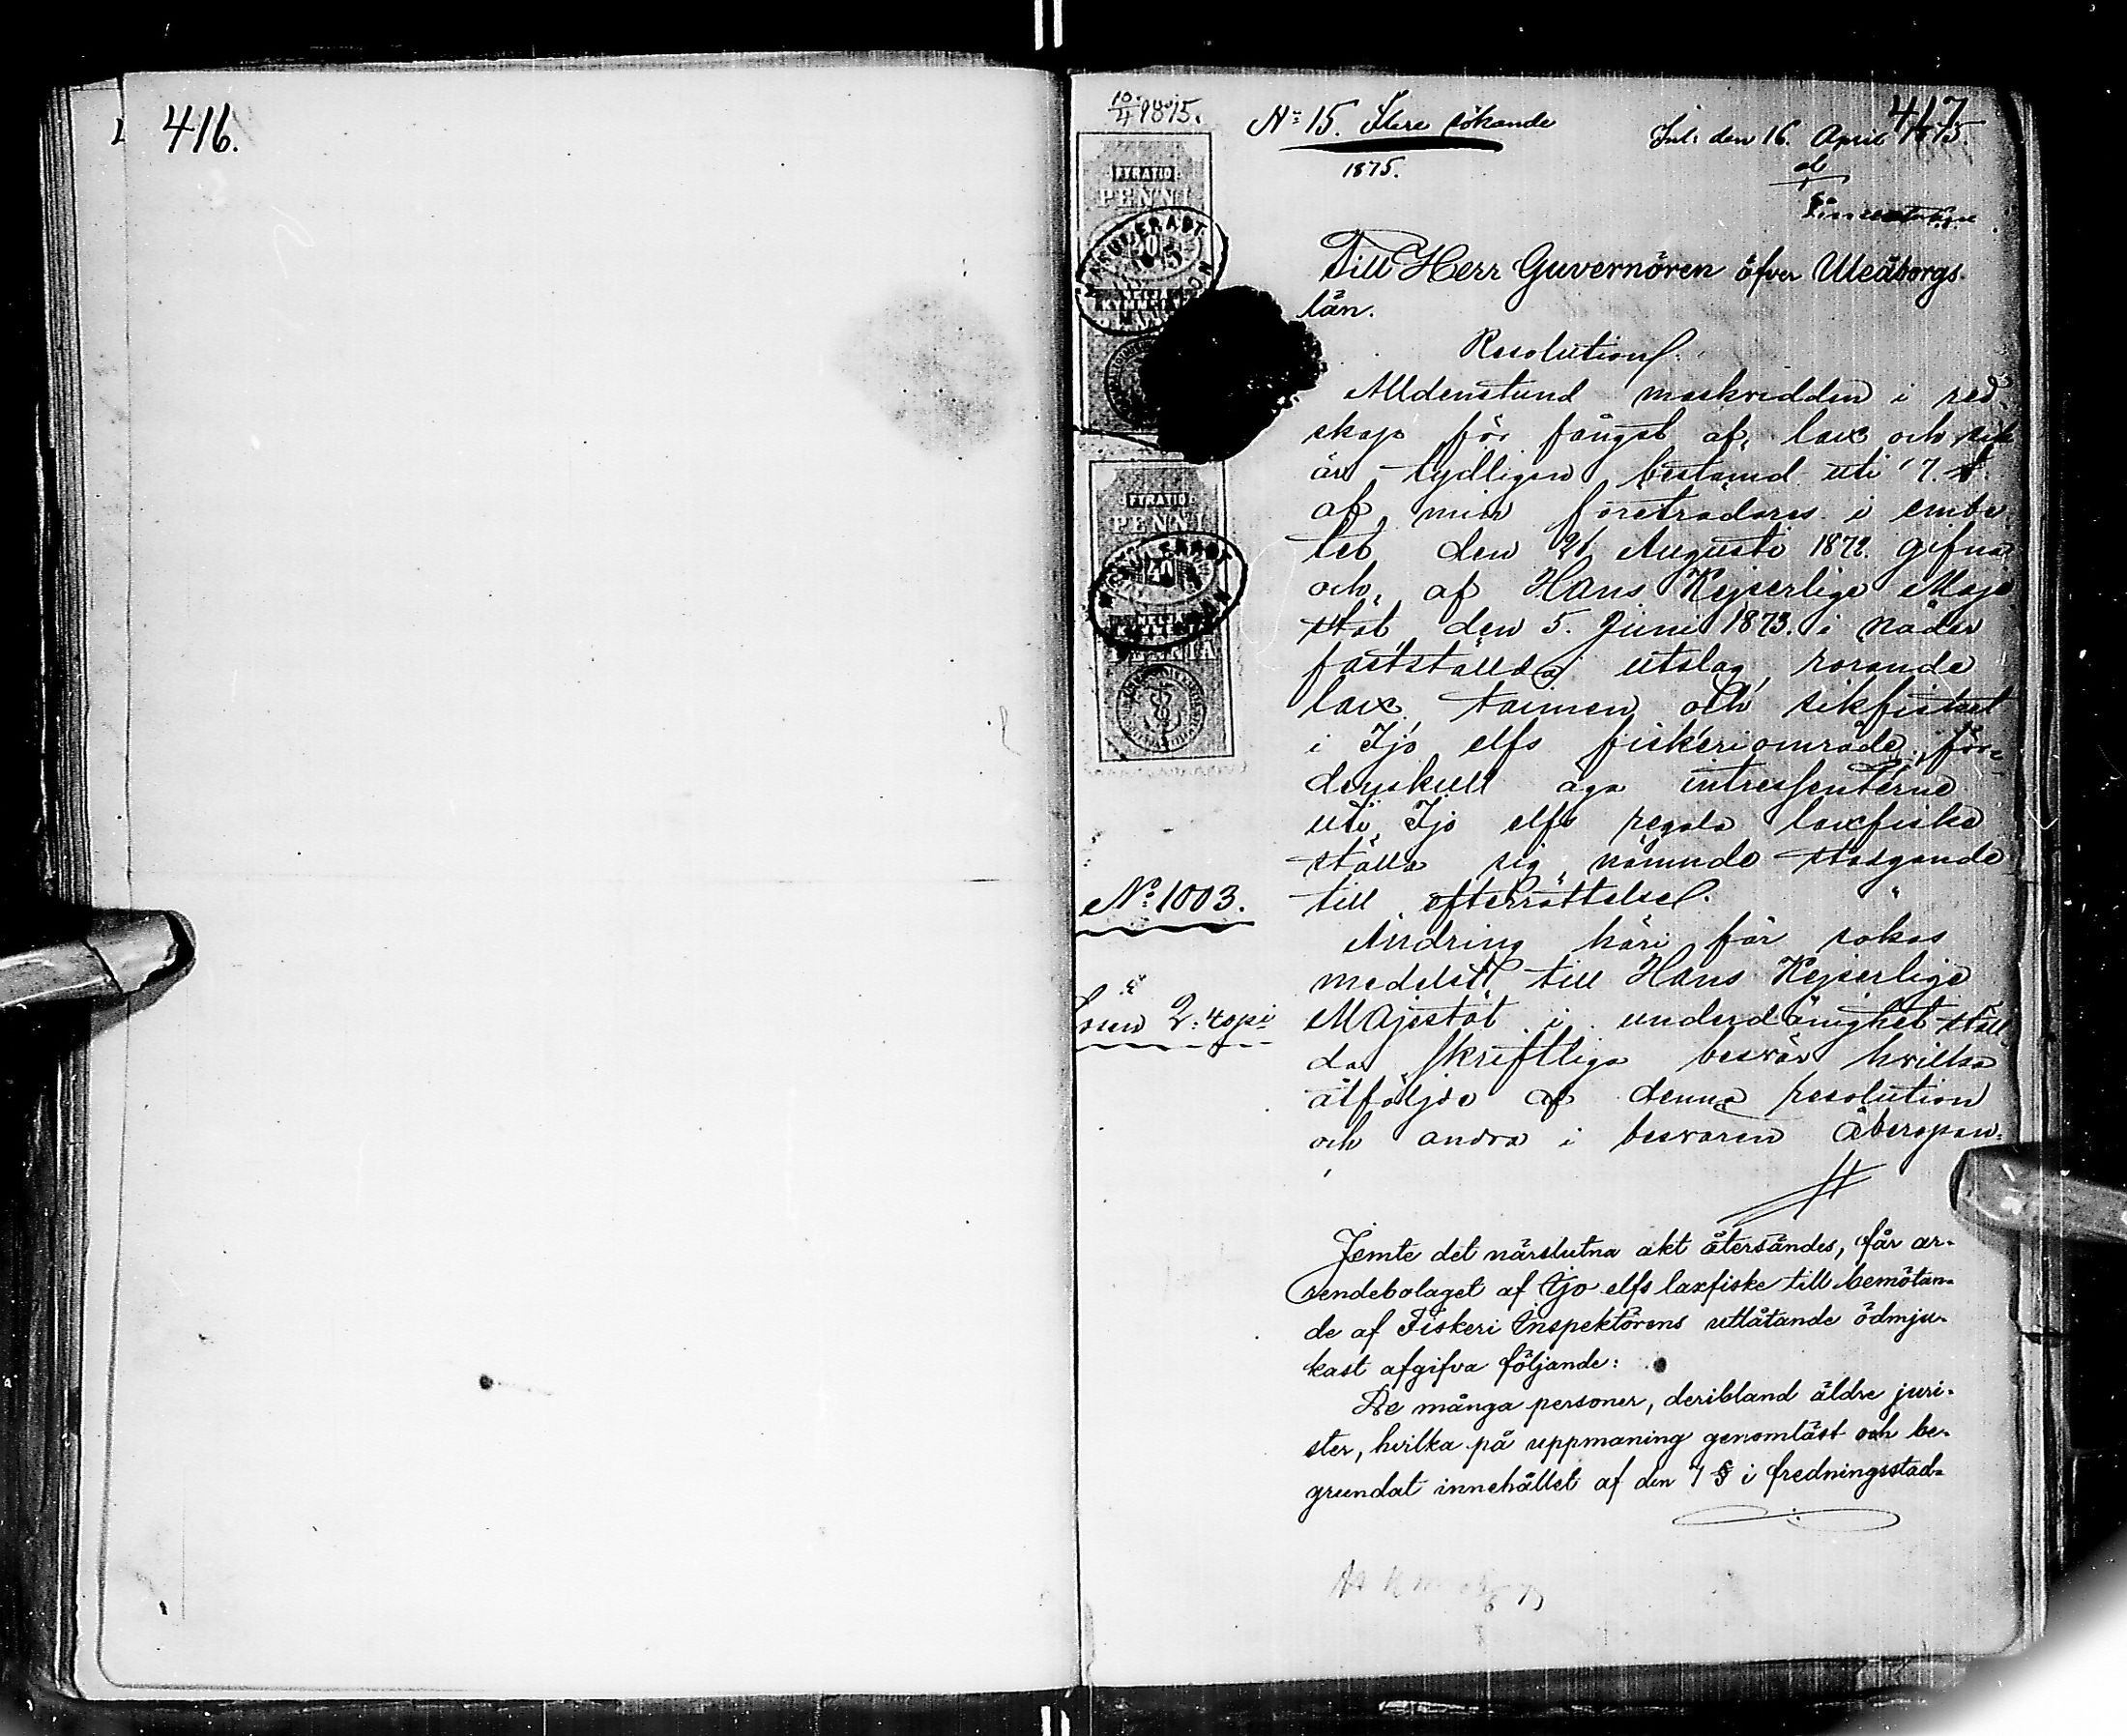 416.
417
10/4 1875.
No 15. Flere sökande
1875.
Inl: den 16. April 1875.
Till Herr Guvernören öfver Uleåborgs
län.
FYRATIO
PENNI
40
NELJÄ
KYMMENTÄ
FYRATIO
PENNI
40
NELJÄ
KYMMENTÄ
PENNIÄ
Resolution.
Alldenstund maskvidden i red-
skap för fångst af lax och sik
är tydligen bestämd uti 7. §.
af min företrädares i embe
tet den 21 Augusti 1872. gifna
och af Hans Kejserliga Maje
stät den 5. Juni 1873. i nåder
fastställda utslag, rörande
lax, taimen och sikfisket
i Ijo elfs fiskeriområde, för-
denskull äga intressenterne
uti Ijo elfs regala laxfiske
ställa sig nämnde stadgande
till efterrättelse.
No 1003.
Ändring häri får sökas
medelst till Hans Kejserliga
Majestät i underdånighet ställ
da skriftliga besvär hvilka
åtföljde af denna resolution
och andra i besvären åberopan-
Lösen 2: 40 pi
Jemte det närslutna akt återsändes, får ar-
rendebolaget af Ijo elfs laxfiske till bemötan-
de af Fiskeri Inspektörens utlåtande ödmju-
kast afgifva följande:
De många personer, deribland äldre juri-
ster, hvilka på uppmaning genomläst och be-
grundat innehållet af den 7 § i fredningsstad-